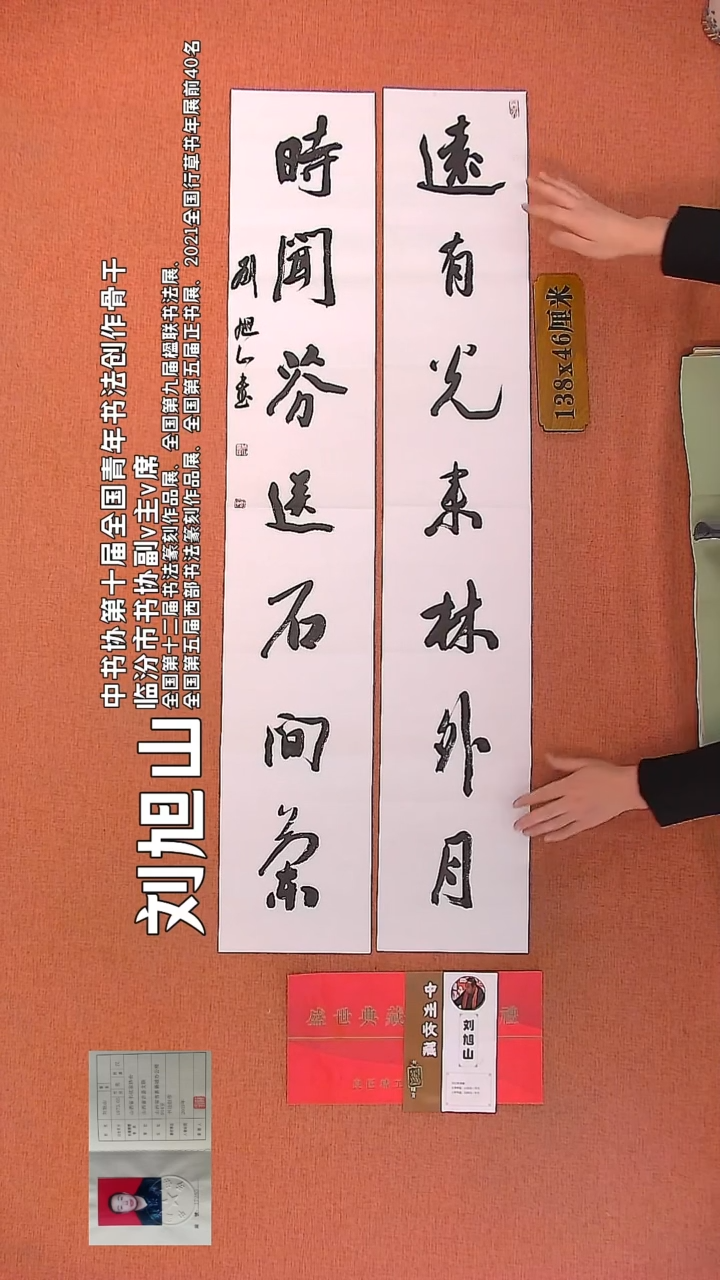 遠有光来林外月
時聞芬送石間蘭
劉旭山書
138x46厘米
中书协第十届全国青年书法创作骨干
临汾市书协副v主v席
全国第十二届书法篆刻作品展、全国第九届楹联书法展、
全国第五届西部书法篆刻作品展、全国第五届正书展、2021全国行草书年展前40名
刘旭山
中州收藏
刘旭山